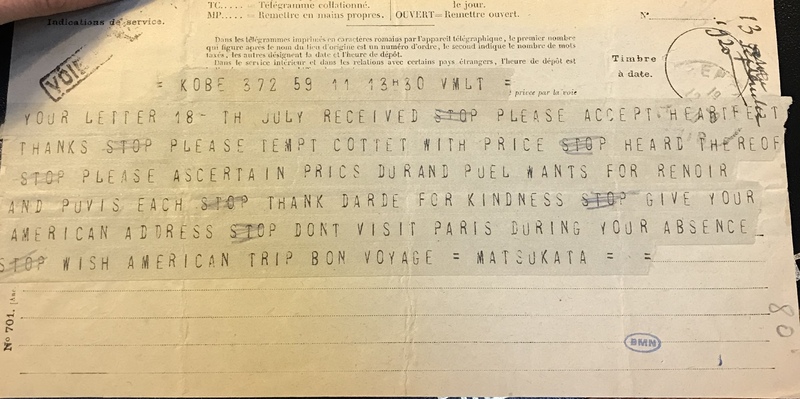 TC..... = Télégramme collationné.
le jour.
MP..... = Remettre en mains propres.
OUVERT = Remettre ouvert.
Indications de service.
N°
Dans les télégrammes imprimés en caractères romains par l'appareil télégraphique, le premier nombre
qui figure après le nom du lieu d'origine est un numéro d'ordre, le second indique le nombre de mots
taxés, les autres désignent la date et l'heure de dépôt.
Dans le service intérieur et dans les relations avec certains pays étrangers, l'heure de dépôt est
Timbre
à date.
VOIE
= KOBE 372 59 11 13H30 VMLT =
YOUR LETTER 18- TH JULY RECEIVED STOP PLEASE ACCEPT HEARTFELT
THANKS STOP PLEASE TEMPT COTTET WITH PRICE STOP HEARD THEREOF
STOP PLEASE ASCERTAIN PRICS DURAND PUEL WANTS FOR RENOIR
AND PUVIS EACH STOP THANK DARDE FOR KINDNESS STOP GIVE YOUR
AMERICAN ADDRESS STOP DONT VISIT PARIS DURING YOUR ABSENCE
STOP WISH AMERICAN TRIP BON VOYAGE = MATSUKATA = =
N° 701.
BMN
80